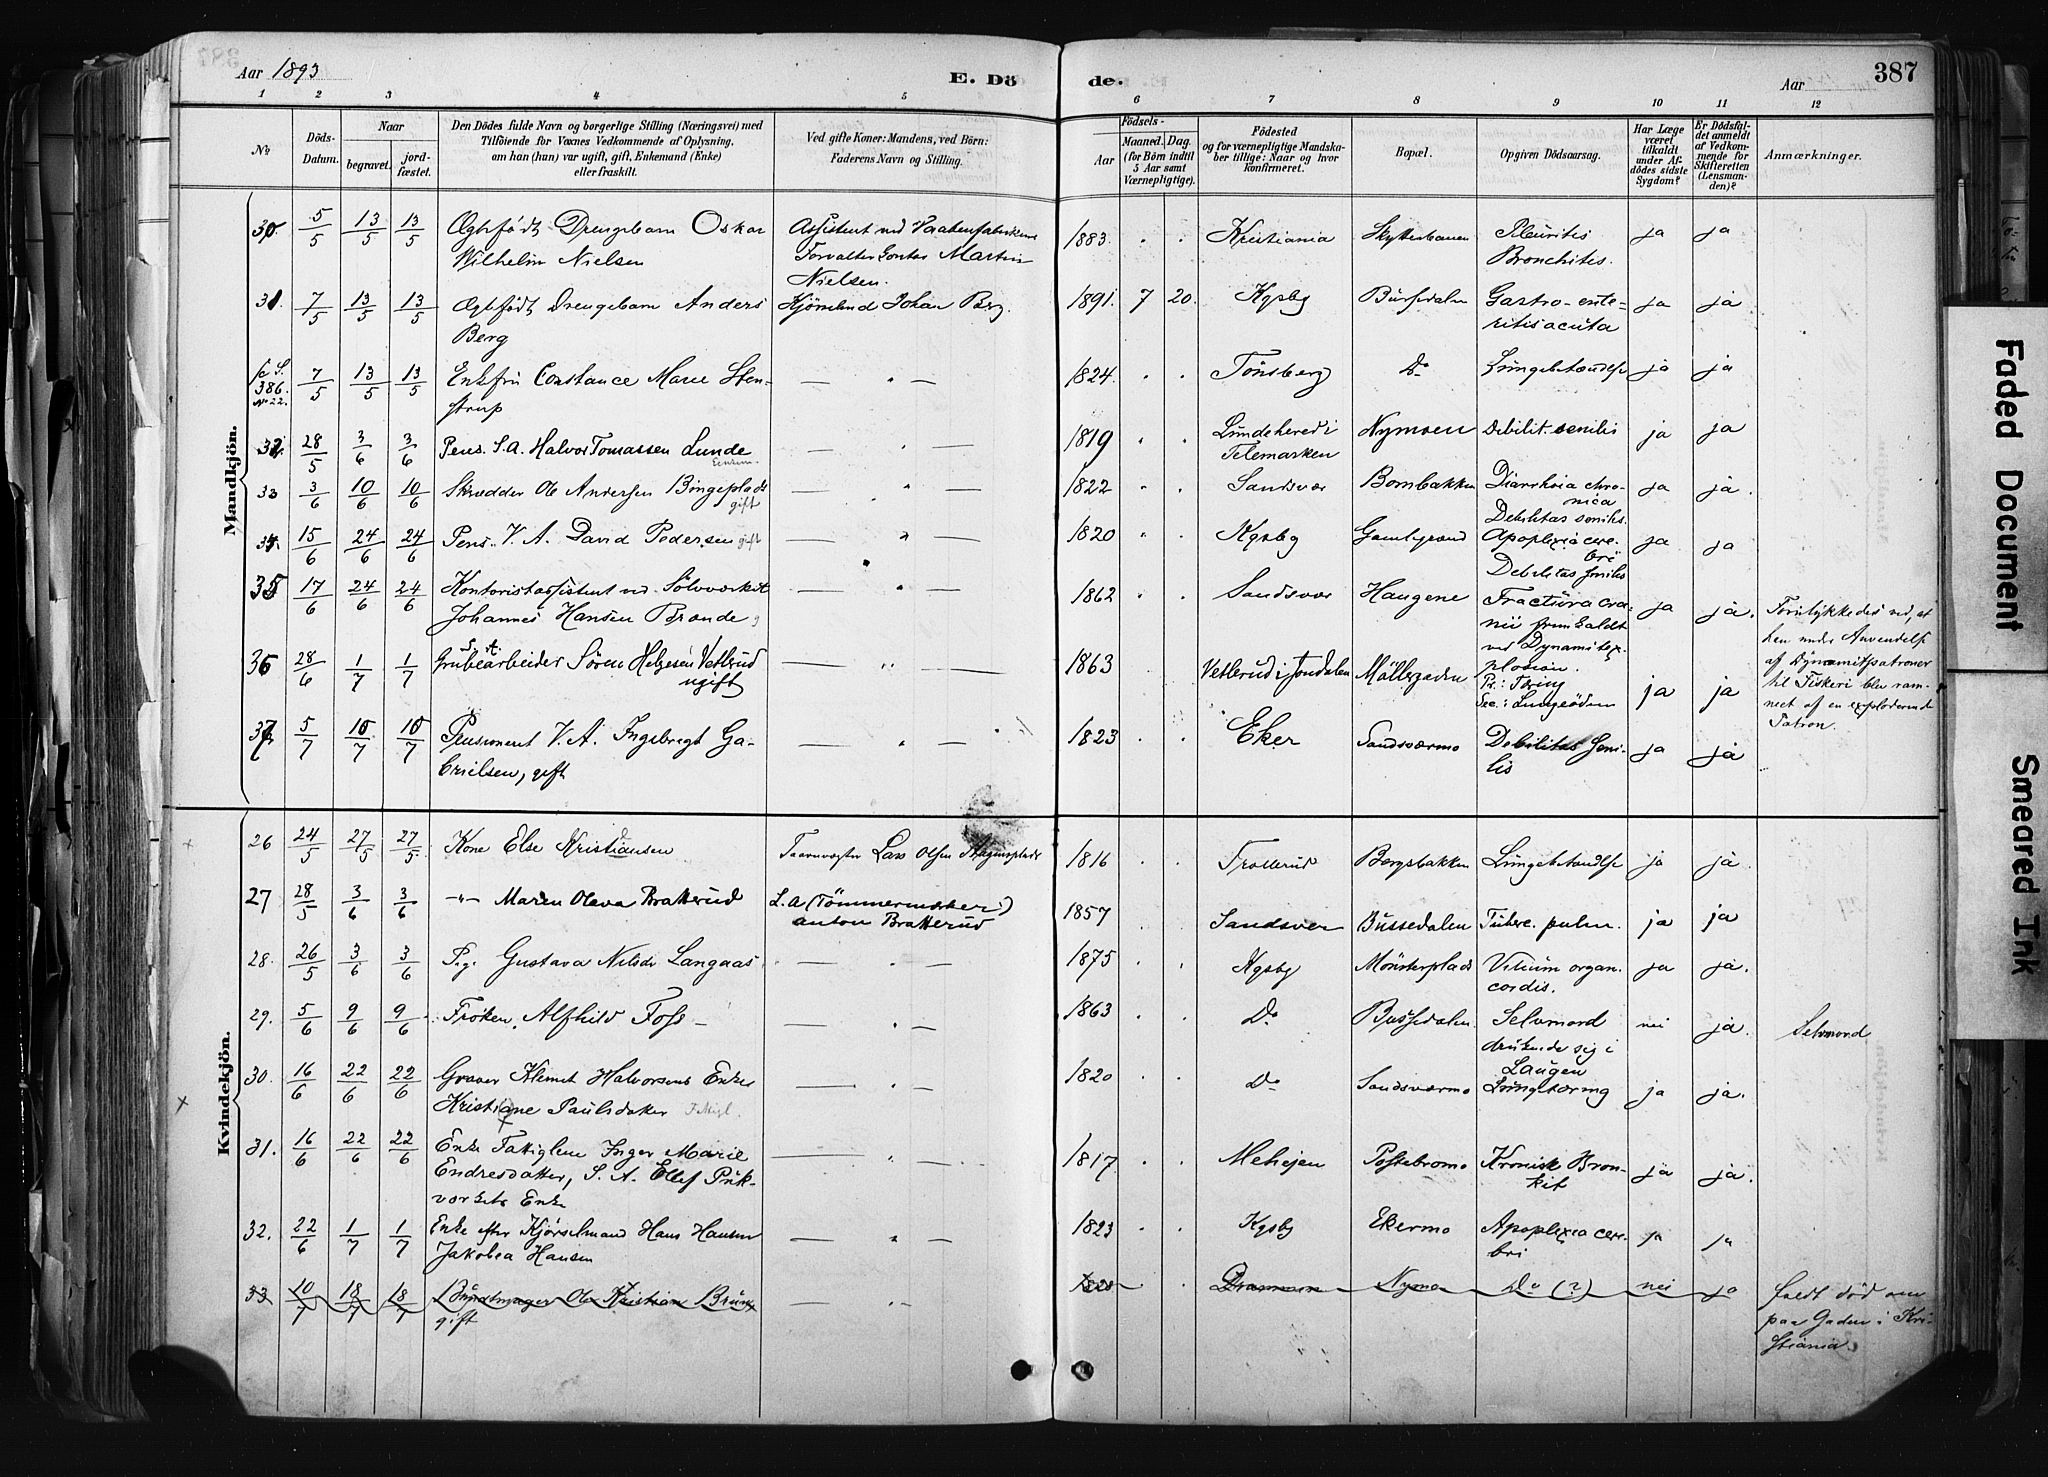 Aar 1893
E. Dö
de.
Aar
387
1 2 3 4 5 6 7 8 9 10 11 12
No
Döds-
Datum.
Naar
begravet.
jord-
fæstet.
Den Dödes fulde Navn og borgerlige Stilling (Næringsvei) med
Tilföiende for Voxnes Vedkommende af Oplysning,
om han (hun) var ugift, gift, Enkemand (Enke)
eller fraskilt.
Ved gifte Koner: Mandens, ved Börn:
Faderens Navn og Stilling.
Födsels-
Aar
Maaned.
Dag.
(for Börn indtil
5 Aar samt
Værnepligtige).
Födested
og for værnepligtige Mandska-
ber tillige: Naar og hvor
konfirmeret.
Bopæl.
Opgiven Dödsaarsag.
Har Læge
været
tilkaldt
under Af-
dödes sidste
Sygdom?
Er Dödsfal-
det anmeldt
af Vedkom-
mende for
Skifteretten
(Lensman-
den)?
Anmærkninger.
Mandkjön.
30 5/5 13/5 13/5 Ægtefödt Drengebarn Oskar
Wilhelm Nielsen
Assistent ved Vaabenfabrikens
Forvalter Martin
Nielsen.
1883. Kristiania Skytterbanen Pleuritis
Bronchitis. ja ja
31. 7/5 13/5 13/5 Ægtefödt Drengebarn Anders
Berg
Kjörmand Johan Berg.
1891. 7 20. Kgsbg Büssedalen Gastro-ente-
ritis acuta ja ja
S.
386.
No 22. 7/5 13/5 13/5 Enkefru Constance Marie Sten-
strup
— " —
1824. Tönsberg Do Lungebetændelse ja ja
32 28/5 3/6 3/6 Pens. S. A. Halvor Tomassen Lunde
Enkem.
— " —
1819 Lundehered i
Telemarken Nymoen Debilit. senilis ja ja
33 3/6 10/6 10/6 Skrædder Ole Andersen Bingeplads
gift
— " —
1822 Sandsvær Bornbakken Diarrhoia chro-
nica
Debilitas seniles. ja ja.
34. 15/6 24/6 24/6 Pens. V. A. David Pedersen gift
— " —
1820 Kgsbg Gamlegrænd Apoplexia cere-
bri
Debilitas seniles ja ja
35 17/6 24/6 24/6 Kontorist assistent ved Sölvværket
Johannes Hansen Brænde g
— " —
1862 Sandsvær Haugene Fractura cra-
nii fremkaldt
ved Dynamitex-
plosion. ja ja.
Forulykkedes ved, at
han under Anvendelse
af Dynamitpatroner
til Fiskeri blev ram-
met af en exploderende
Patron.
36 28/6 1/7 1/7 S. A.
Grubearbeider Sören Helgesen Vetlerud
ugift
— " —
1863 Vetlerud i Jondalen Möllergaden Pr.: Tæring
Sec.: Lungeödem ja ja
37 5/7 10/7 10/7 Pensioneret V. A. Ingebregt Ga-
brielsen, gift
— " —
1823 Eker Sandsværmo Debilitas Seni-
lis ja ja
Kvindekjön.
26 24/5 27/5 27/5. Kone Else Kristiansen
Taarnvægter Lars Olsen Hagenplads
1816 Trollerud Bergsbakken Lungebetændelse ja ja.
27 28/5 3/6 3/6 —"— Maren Oleva Bratterud
S. A (Tömmermærker)
Anton Bratterud
1857 Sandsver Büssedalen Tuberc. pulm. ja ja
28. 26/5 3/6 3/6 Pige Gustava Nilsdr Langaas.
— " —
1875 Kgsbg Mönsterplads Vitium organ.
cordis. ja ja.
29. 5/6 9/6 9/6 Fröken Alfhild Foss —
— " —
1863 Do Bussedalen. Selvmord
druknede sig i
Laugen nei ja.
Selvmord
30. 16/6 22/6 22/6 Graver Klemet Halvorsens Enke
Kristiane Paulsdatter Fattigl.
— " —
1820 Do Sandsværmo Lungetæring ja ja.
31. 16/6 22/6 22/6 Enke Fattiglem Inger Marie
Endresdatter, S. A. Ellef Puk-
værkets Enke
— " —
1817 Meheien Postebromo Kronisk Bron-
kit ja ja.
32. 22/6 1/7 1/7 Enke efter Kjörselmand Hans Hansen
Jakobea Hansen
— " —
1823 Kgsbg Ekermo Apoplexia cere-
bri ja ja
33 10/7 18/7 18/7 Bundtmager Ole Kristian Bruun
gift
— " —
1828 Drammen Nymoen Do (?) nei ja
faldt död om
paa Gaden i Kri-
stiania.
Faded Document
Smeared Ink